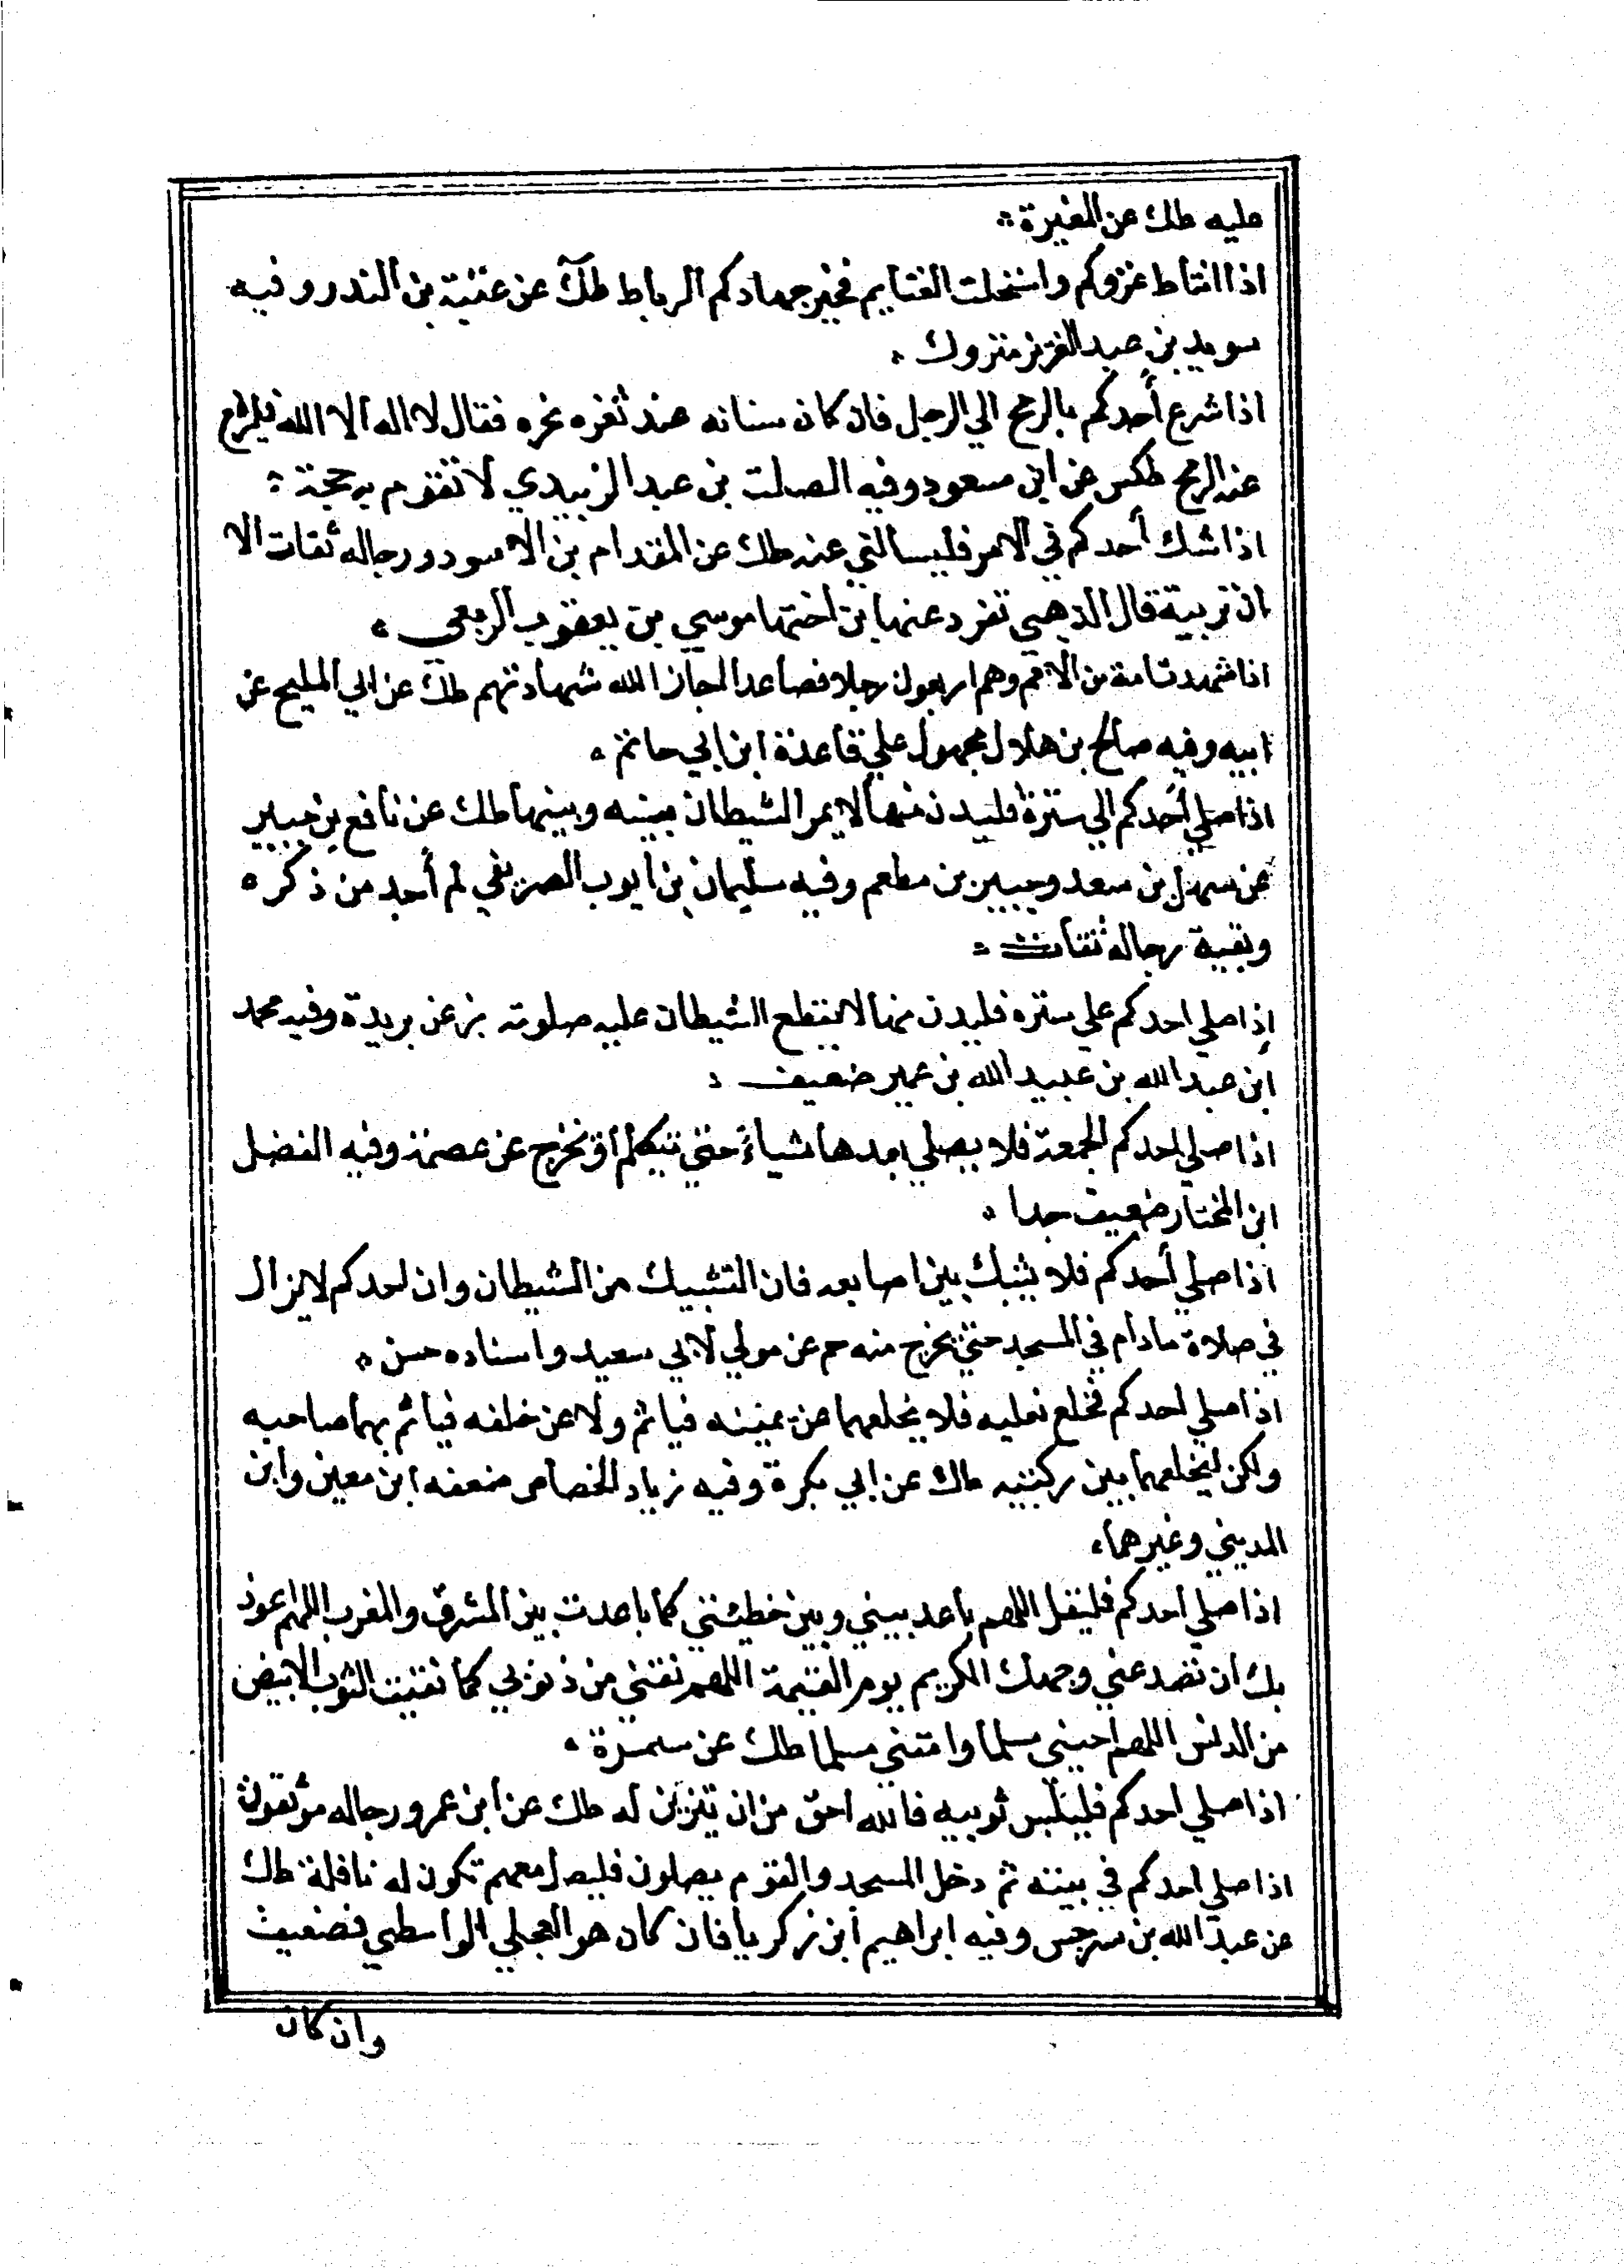 عليه طك عن المغيرة
اذا انتاط غزوكم واستحلت الغنايم فخير جهادكم الرباط طك عن عتبة بن الندر وفيه
سويد بن عبد العزيز متروك
اذا شرع أحدكم بالرمح الي الرجل فان كان سنانه عند ثغره نحره فقال لا اله الا الله فليرفع
عنه الرمح طكس عن ابن مسعود وفيه الصلت بن عبد الزبيدي لا تقوم به حجة
اذا شك أحدكم في الامر فليسالني عنه طك عن المقدام بن الاسود ورجاله ثقات الا
ان تربية قال الذهبي تفرد عنها بن اختها موسي بن يعقوب الزمعي
اذا شهد تامة من الامم وهم اربعون رجلا فصاعدا اجاز الله شهادتهم طك عن ابي المليح عن
ابيه وفيه صالح بن هلال مجهول علي قاعدة ابن ابي حاتم
اذا صلي أحدكم الي سترة فليدن منها لا يمر الشيطان بينه وبينها طك عن نافع بن جبير
عن سهل بن سعد وجبير بن مطعم وفيه سليمان بن ايوب الصريفي لم أجد من ذكره
وبقية رجاله ثقات
إذا صلي احدكم علي ستره فليدن منها لا يقطع الشيطان عليه صلوته بز عن بريدة وفيه محمد
ابن عبد الله بن عبيد الله بن عمير ضعيف
اذا صلي احدكم الجمعة فلا يصلي بعدها شياء حتي يتكلم أو يخرج عن عصمة وفيه الفضل
ابن المختار ضعيف جدا
اذا صلي أحدكم فلا يشبك بين اصابعه فان التشبيك من الشيطان وان احدكم لا يزال
في صلاة مادام في المسجد حتي يخرج منه حم عن مولي لابي سعيد واسناده حسن
اذا صلي احدكم فخلع نعليه فلا يخلعهما عن يمينه فياثم ولا عن خلفه فياثم بهما صاحبه
ولكن ليخلعهما بين ركبتيه طك عن ابي بكرة وفيه زياد الخصاص ضعفه ابن معين وابن
المديني وغيرهما
اذا صلي احدكم فليقل اللهم باعد بيني وبين خطيئتي كما باعدت بين المشرق والمغرب اللهم اعوذ
بك ان تصد عني وجهك الكريم يوم القيمة اللهم نقني من ذنوبي كما نقيت الثوب الابيض
من الدنس اللهم احيني مسلما وامتني مسلما طك عن سمرة
اذا صلي احدكم فليلبس ثوبيه فالله احق من ان يتزين له طك عن ابن عمر ورجاله موثقون
اذا صلي احدكم في بيته ثم دخل المسجد والقوم يصلون فليصل معهم تكون له نافلة طك
عن عبد الله بن سرجس وفيه ابراهيم ابن زكريا فان كان هو العجلي الواسطي فضعيف
وان كان